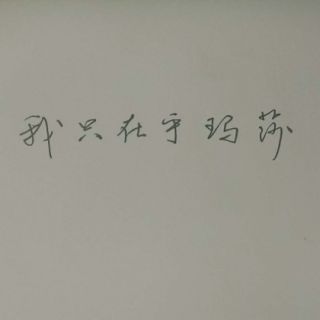 我只在乎玛莎